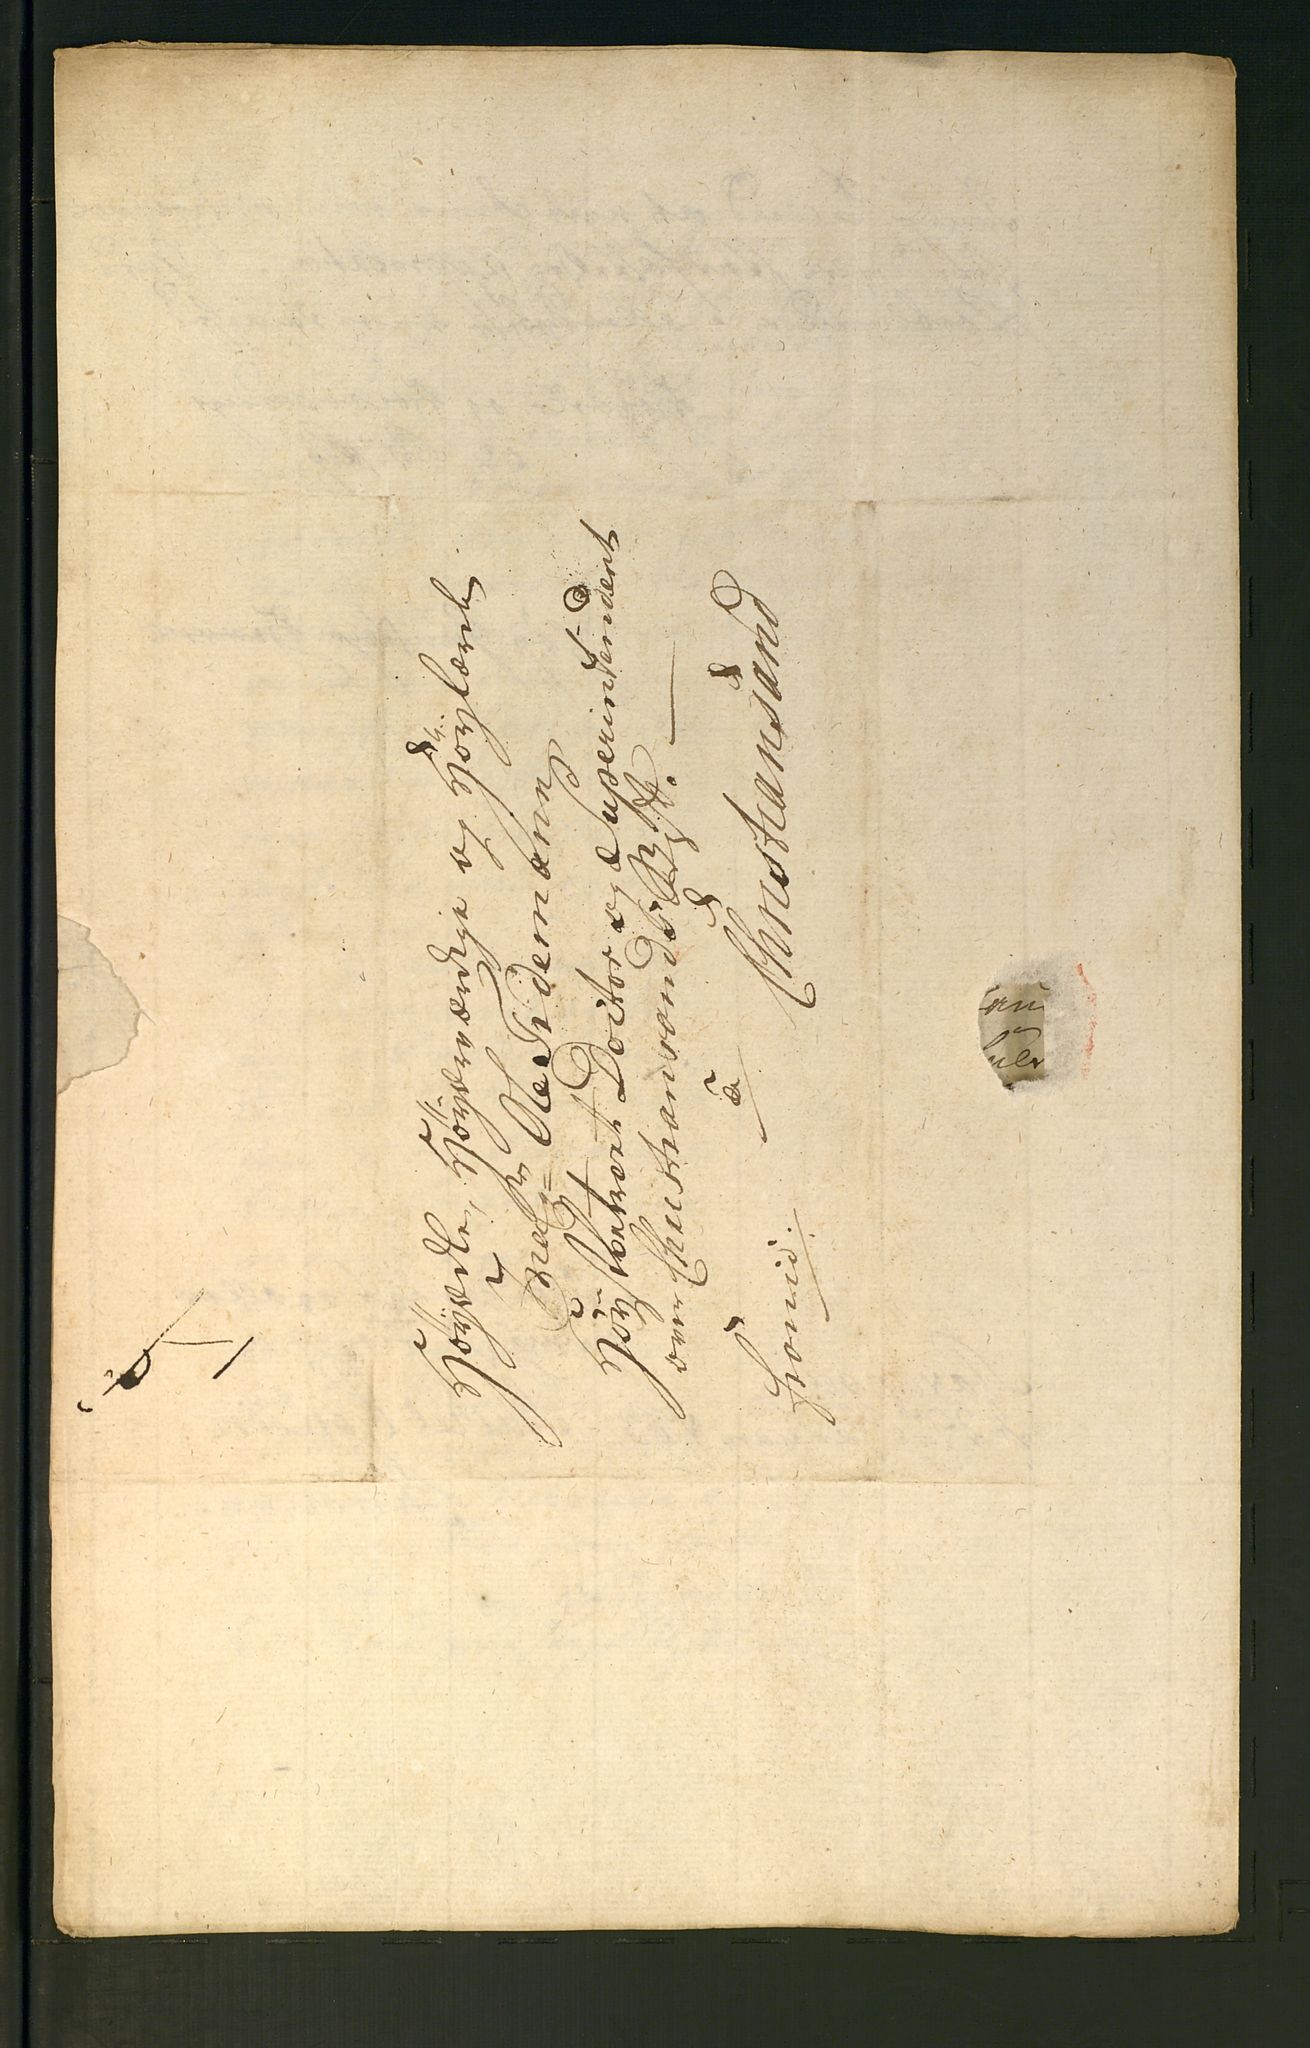 Høyædle, Høyærværdige og Høylærde
Hr Ole Tidemand
Høystæret Doctor og Superintendent
over Christiansands Stift.
a
Christiansand
franco.